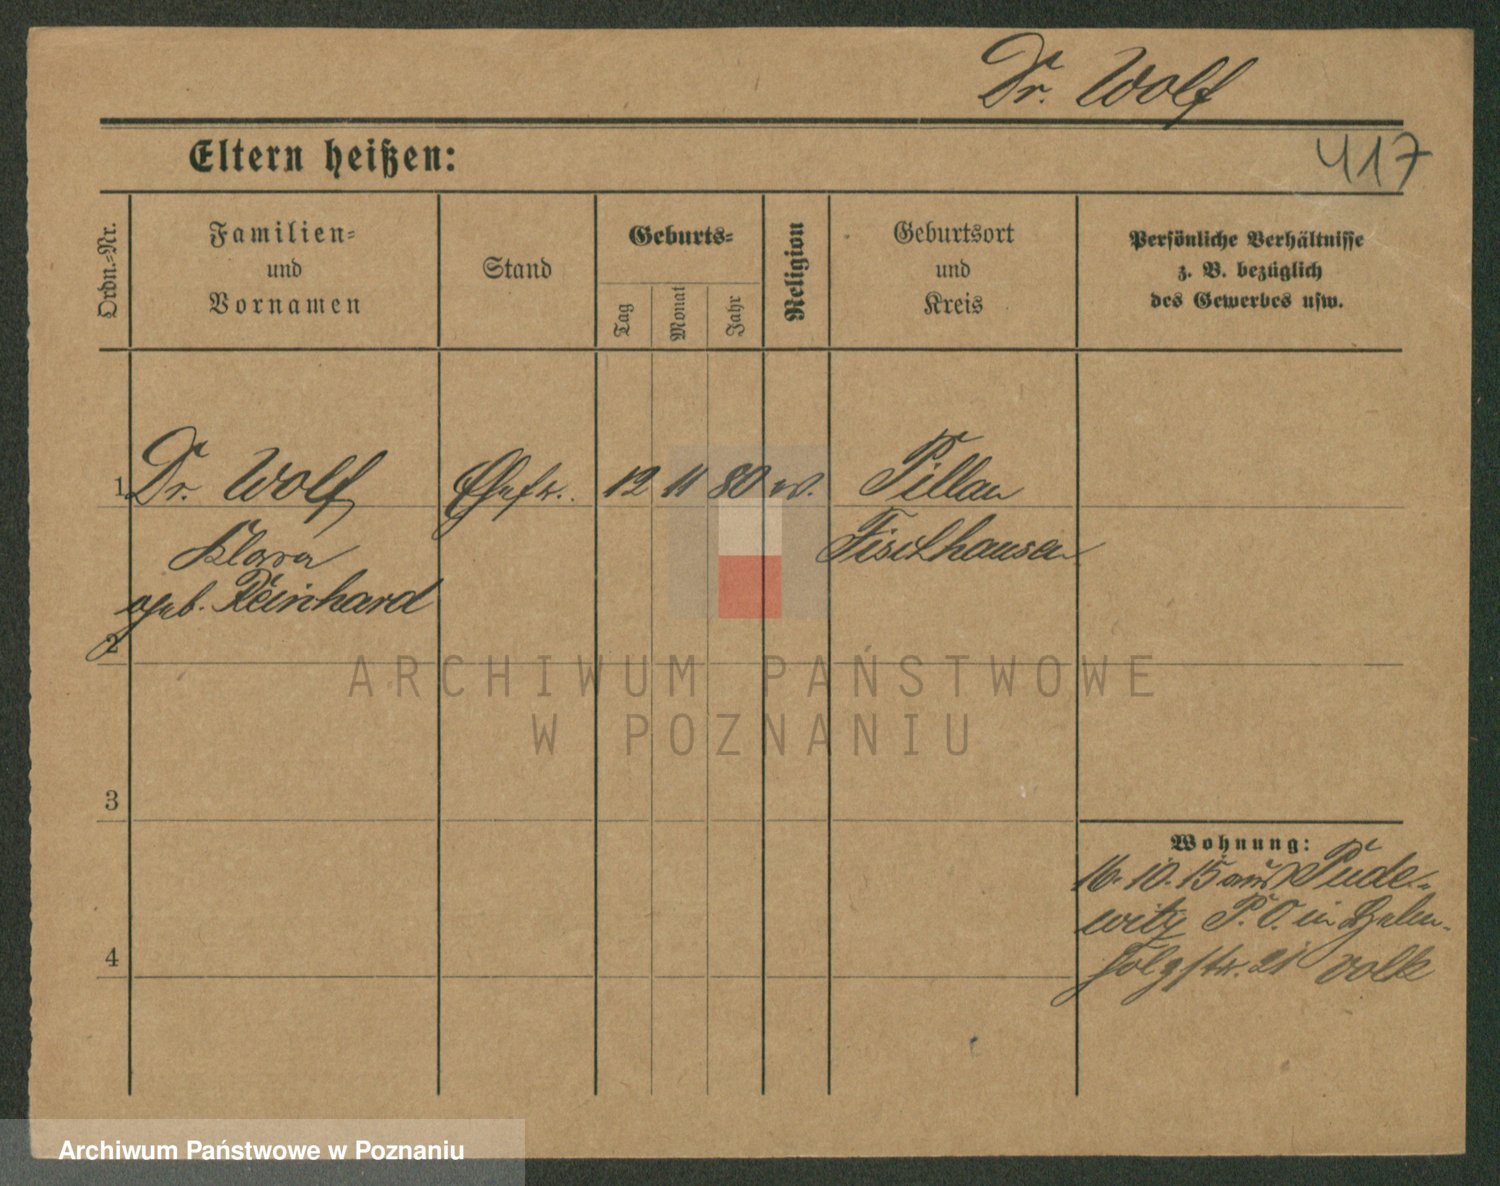 Dr. Wolf
417
Eltern heißen:
Ordn.-Nr.
Familien-
und
Vornamen
Stand
Geburts-
Tag
Monat
Jahr
Religion
Geburtsort
und
Kreis
Persönliche Verhältnisse
z. B. bezüglich
des Gewerbes usw.
1 Dr. Wolf Ehefr. 12 11 80 Pillau
Klara Fischhausen
geb. Reinhard
2
ARCHIWUM PAŃSTWOWE
W POZNANIU
3
Wohnung:
16. 10. 15 aus Pude-
witz P. O. in
4
str. 21
Archiwum Państwowe w Poznaniu